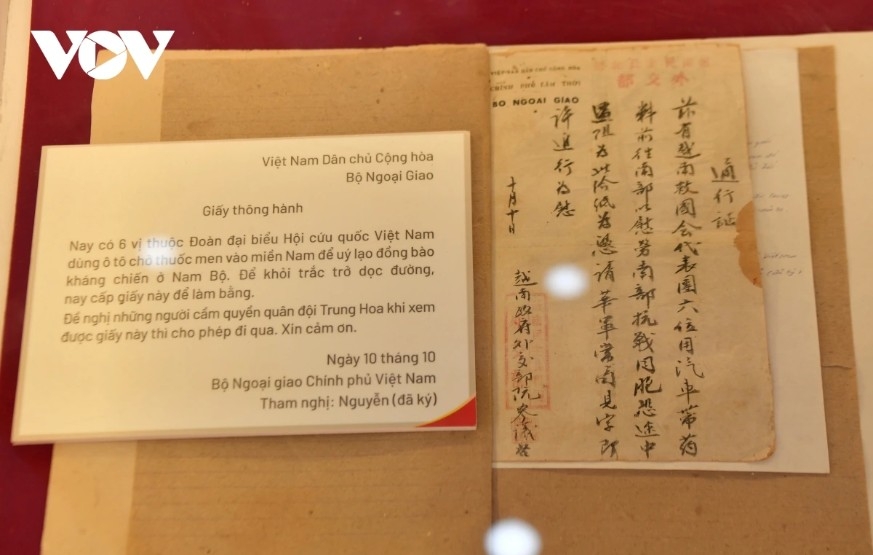 VOV
Việt Nam Dân chủ Cộng hòa
Bộ Ngoại Giao
Giấy thông hành
Nay có 6 vị thuộc Đoàn đại biểu Hội cứu quốc Việt Nam
dùng ô tô chở thuốc men vào miền Nam để uỷ lạo đồng bào
kháng chiến ở Nam Bộ. Để khỏi trắc trở dọc đường,
nay cấp giấy này để làm bằng.
Đề nghị những người cầm quyền quân đội Trung Hoa khi xem
được giấy này thì cho phép đi qua. Xin cảm ơn.
Ngày 10 tháng 10
Bộ Ngoại giao Chính phủ Việt Nam
Tham nghị: Nguyễn (đã ký)
VIỆT NAM DÂN CHỦ CỘNG HÒA
CHÍNH PHỦ LÂM THỜI
BỘ NGOẠI GIAO
部交外
通行証
茲有越南救國会代表團六位用汽車帶药
料前往南部以慰劳南部抗战同胞恐途中
遇阻为此给纸为憑请華軍当局見字即
许進行为慰
十月十日
越南政府外交部阮